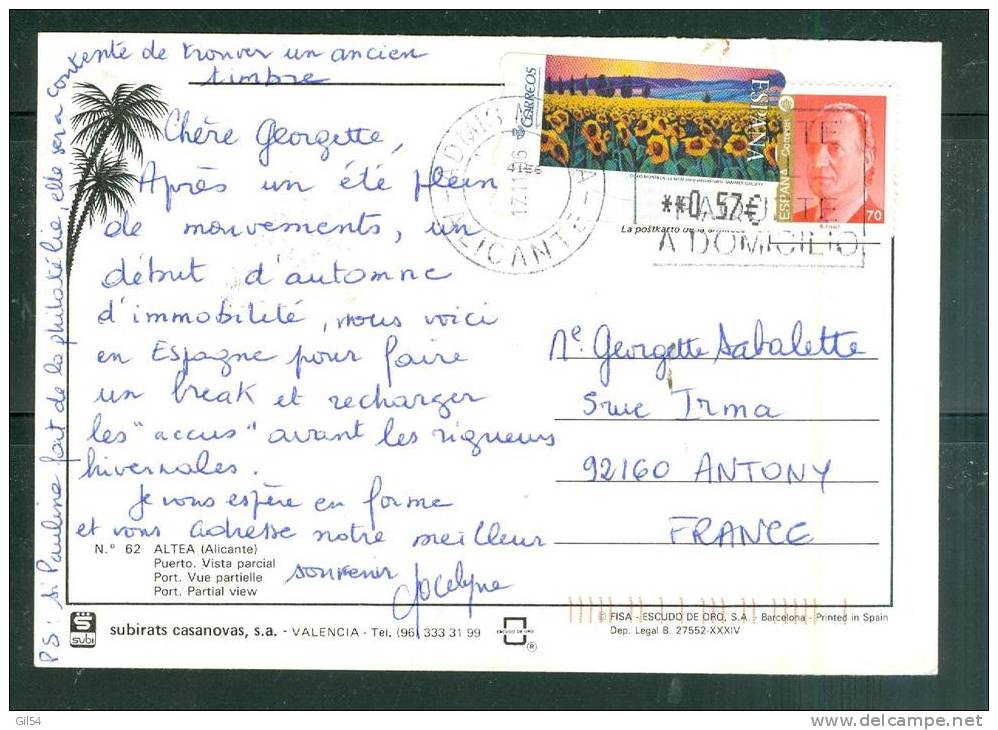 PS: si Pauline fait de la philatélie, elle sera contente de trouver un ancien
timbre
Chère Georgette,
Après un été plein
de mouvements, un
début d'automne
d'immobilité, nous voici
en Espagne pour faire
un break et recharger
les "accus" avant les rigueurs
hivernales.
Je vous espère en forme
et vous adresse notre meilleur
souvenir Jocelyne
N.° 62 ALTEA (Alicante)
Puerto. Vista parcial
Port. Vue partielle
Port. Partial view
subi
subirats casanovas, s.a. - VALENCIA - Tel. (96) 333 31 99
ESCUDO DE ORO
®
CORREOS
ESPAÑA
**0,57€
ESPAÑA Correos
70
17.11
ALICANTE
A DOMICILIO
La postkarto de la
Me Georgette Sabalette
5 rue Irma
92160 ANTONY
FRANCE
© FISA - ESCUDO DE ORO, S.A. - Barcelona - Printed in Spain
Dep. Legal B. 27552-XXXIV
Gil54
www.delcampe.net